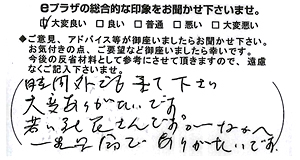 ❽プラザの総合的な印象をお聞かせ下さいませ。
☑大変良い □良い □普通 □悪い □大変悪い
◆ご意見、アドバイス等が御座いましたらお聞かせ下さい。
お気付きの点、ご要望など御座いましたら幸いです。
今後の反省材料として参考にさせて頂きますので、遠慮
なくご記入下さいませ。
時間外でも来て下さり
大変ありがたいです
若い
さんですが なかなか
一生懸命で ありがたいです.